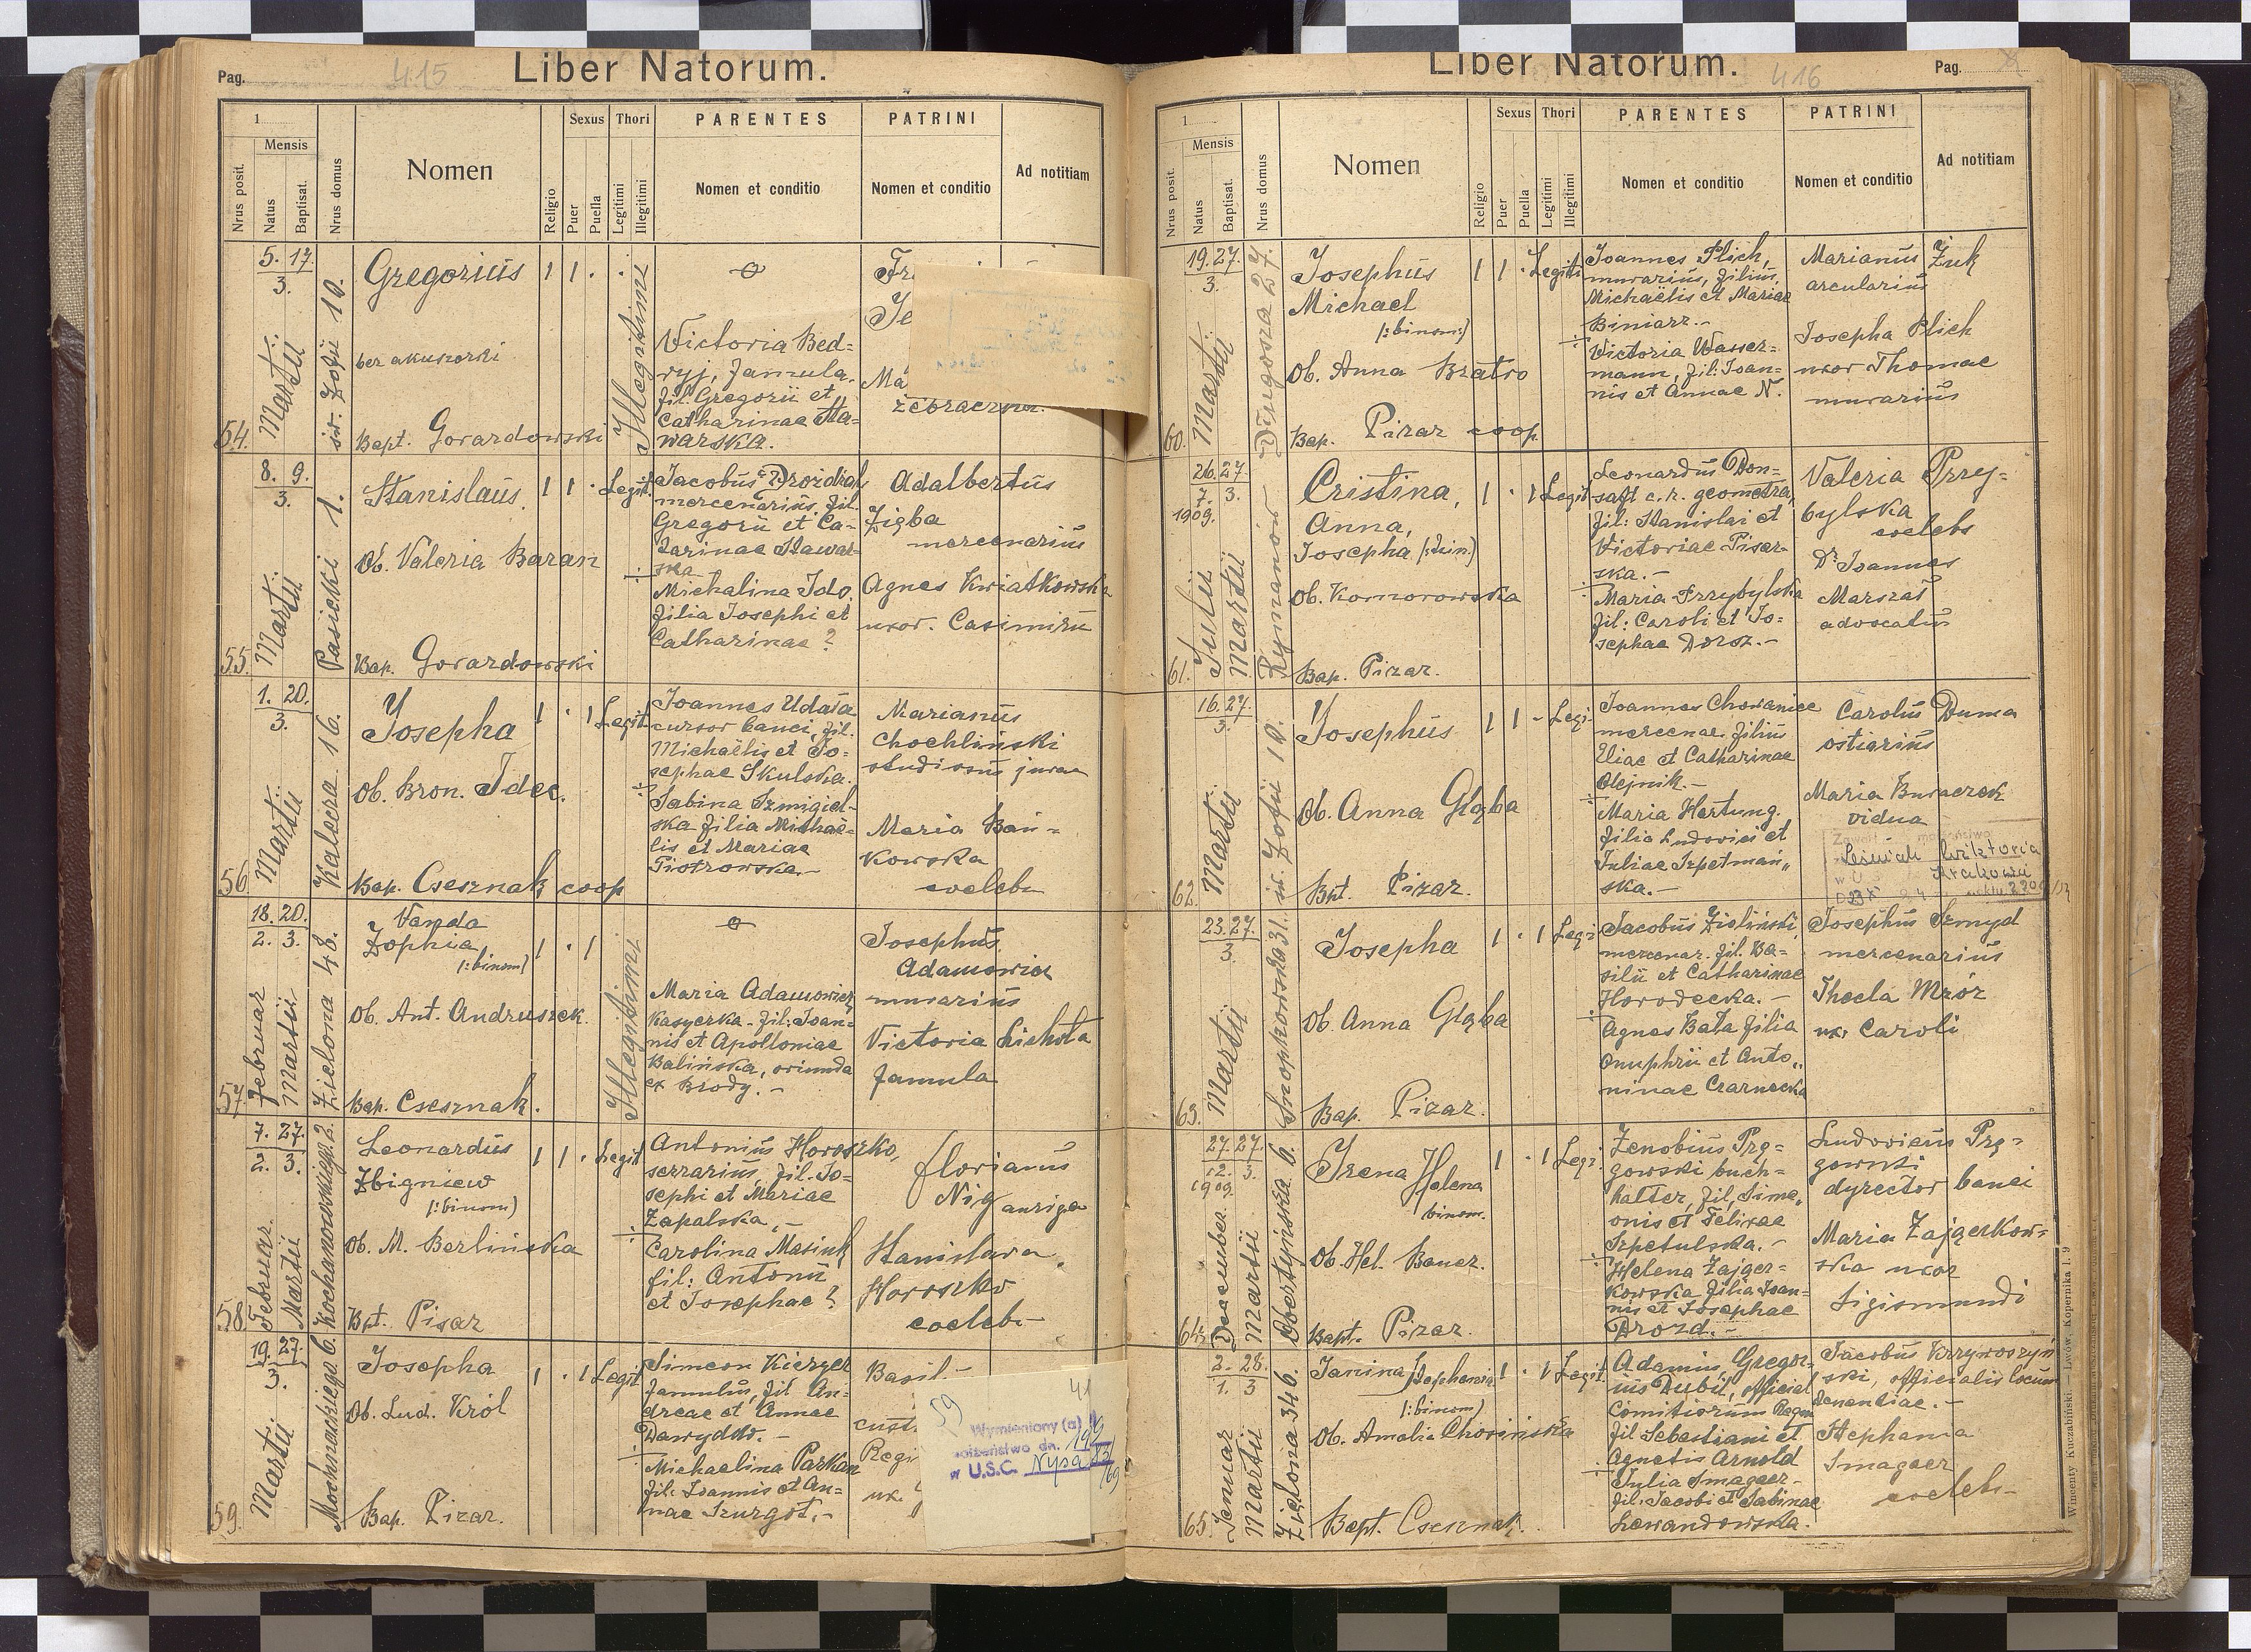 Pag.
415
Liber Natorum.
1
Mensis
Nrus posit.
Natus
Baptisat.
Nrus domus
Nomen
Religio
Sexus
Puer
Puella
Thori
Legitimi
Illegitimi
PARENTES
Nomen et conditio
PATRINI
Nomen et conditio
Ad notitiam
54.
5. 17.
3.
Martii
św. Zofii 10.
Gregorius
1 1 .
bez akuszerki
Bapt. Gorardowski
Illegitimi
Victoria Bed=
ryj, famula,
fil. Gregorii et
Catharinae Sta=
warska.
Fr
Je
Ma
żebraczka.
55.
8. 9.
3.
Martii
Pasieki 1.
Stanislaus.
1 1 .
Legit.
Ob. Valeria Baran
Bap. Gorardowski
Jacobus Drozdiak
mercenarius, fil.
Gregorii et Ca=
tarinae Stawar=
ska
Michalina Ido.
filia Josephi et
Catharinae ?
Adalbertus
Zięba
mercenarius
Agnes Kwiatkowska
uxor. Casimiri
56.
1. 20.
3.
Martii
Kalecza 16.
Josepha
1 . 1
Legit.
Ob. Bron. Idec.
Bap. Csesznak coop
Joannes Udała
cursor banci, fil.
Michaëlis et Jo=
sephae Skulska.
Sabina Szmigiel=
ska filia Michaë=
lis et Mariae
Piotrowska.-
Marianus
Chochliński
studiosus jurae
Maria Bań=
kowska
coelebs
57.
18. 20.
2. 3.
Februar
Martii
Zielona 48.
Vanda
Zophia
(:binom)
1 . 1
Ob. Ant. Andruszek.
Bap. Csesznak.
Illegitimi
Maria Adamowicz
Kasyerka - fil: Joan=
nis et Apolloniae
Balińska, oriunda
ex Brody. -
Josephus
Adamowicz
murarius
Victoria Lichota
famula
58.
7. 27.
2. 3.
Februar.
Martii
Kochanowskiego 2.
Leonardus
Zbigniew
(:binom)
1 1 .
Legit
Ob. M. Berlińska
Bpt. Pizar
Antonius Horoszko,
serrarius, fil. Jo=
sephi et Mariae
Zapalska, -
Carolina Masiuk
fil: Antonii
et Josephae ?
Florianus
Nig auriga
Stanislava
Horoszko
coelebs -
59.
19. 27.
3.
Martii
Mochnackiego 6.
Josepha
1 . 1
Legit.
Ob. Lud. Król
Bap. Pizar.
Simeon Kierzer
famulus, fil An=
dreae et Annae
Dawydko. -
Michaelina Parkan
fil. Joannis et An=
nae Szurgot. -
Basil -
cust.
Regi
ux.
59
41
Wymieniony (a)
małżeństwo dn.
w U.S.C. Nysa
Liber Natorum.
416
Pag.
1
Mensis
Nrus posit.
Natus
Baptisat.
Nrus domus
Nomen
Religio
Sexus
Puer
Puella
Thori
Legitimi
Illegitimi
PARENTES
Nomen et conditio
PATRINI
Nomen et conditio
Ad notitiam
60.
19. 27.
3.
Martii
Długosza 27.
Josephus
Michael
(:binom:)
1 1 .
Legiti
Ob. Anna Bratro
Bap. Pizar coop.
Joannes Plich,
murarius, filius
Michaëlis et Mariae
Biniarz.-
Victoria Wasser=
mann, fil: Joan=
nis et Annae N.
Marianus Żuk
arcularius
Josepha Plich
uxor Thomae
murarius
61.
26. 27.
7. 3.
1909.
Julii
Martii
Rymanów
Cristina,
Anna,
Josepha (:trin.)
1 . 1
Legit.
Ob. Komorowska
Bap. Pizar.
Leonardus Don=
saft c. r. geometra,
fil: Stanislai et
Victoriae Pisar=
ska.-
Maria Przybylska
fil: Caroli et Jo=
sephae Dorosz.-
Valeria Przy=
bylska
coelebs
Dr Joannes
Marszał
advocatus
62.
16. 27.
3.
Martii
św. Zofii 10.
Josephus
1 1 -
Legi-
Ob. Anna Głąba
Bpt. Pizar.
Joannes Chowaniec
mercenar. filius
Eliae et Catharinae
Olejnik.-
Maria Hertung.
filia Ludovici et
Juliae Szpetmań„
ska.-
Carolus Duma
ostiarius
Maria Buraczek
vidua
Leśniak Wiktoria
Krakowie
63.
23. 27.
3.
Martii
Snopkowska 31.
Josepha
1 . 1
Legi
Ob. Anna Głąba
Bap. Pizar.
Jacobus Zieliński,
mercenar. fil. Ba=
silii et Catharinae
Horodecka. -
Agnes Bata filia
Onuphrii et Anto„
ninae Czarnecka
Josephus Szmyd
mercenarius
Thecla Mróz
ux. Caroli
64.
27. 27.
12. 3.
1909.
December.
Martii
Obertyńska 6.
Irena Helena
binom.
1 . 1
Legi.
Ob. Hel. Bauer.
Bapt. Pizar.
Zenobius Prę=
gowski buch=
halter, fil, Sime„
onis et Felixae
Szpetulska. -
Helena Zającz=
kowska filia Joan=
nis et Josephae
Drozd. -
Ludovicus Prę=
gowski
dyrector banci
Maria Zajączkow=
ska uxor
Sigismundi
65.
2. 28.
1. 3
Januar
Martii
Zielona 346.
Janina Stephania
(:binom)
1 . 1
Legit.
Ob. Amalia Chosińska
Bapt. Csesznak.
Adamus Gregor=
ius Dubil, official
Comitiorum Regen
fil Sebastiani et
Agnetis Arnold
Julia Smagaer -
fil. Jacobi et Sabinae
Lewandowska.
Jacobus Krzywoszyń
ski, officialis locum
tenentiae. -
Stephania
Smagaer
coelebs -
Wincenty Kuczabiński — Lwów, Kopernika 1. 9